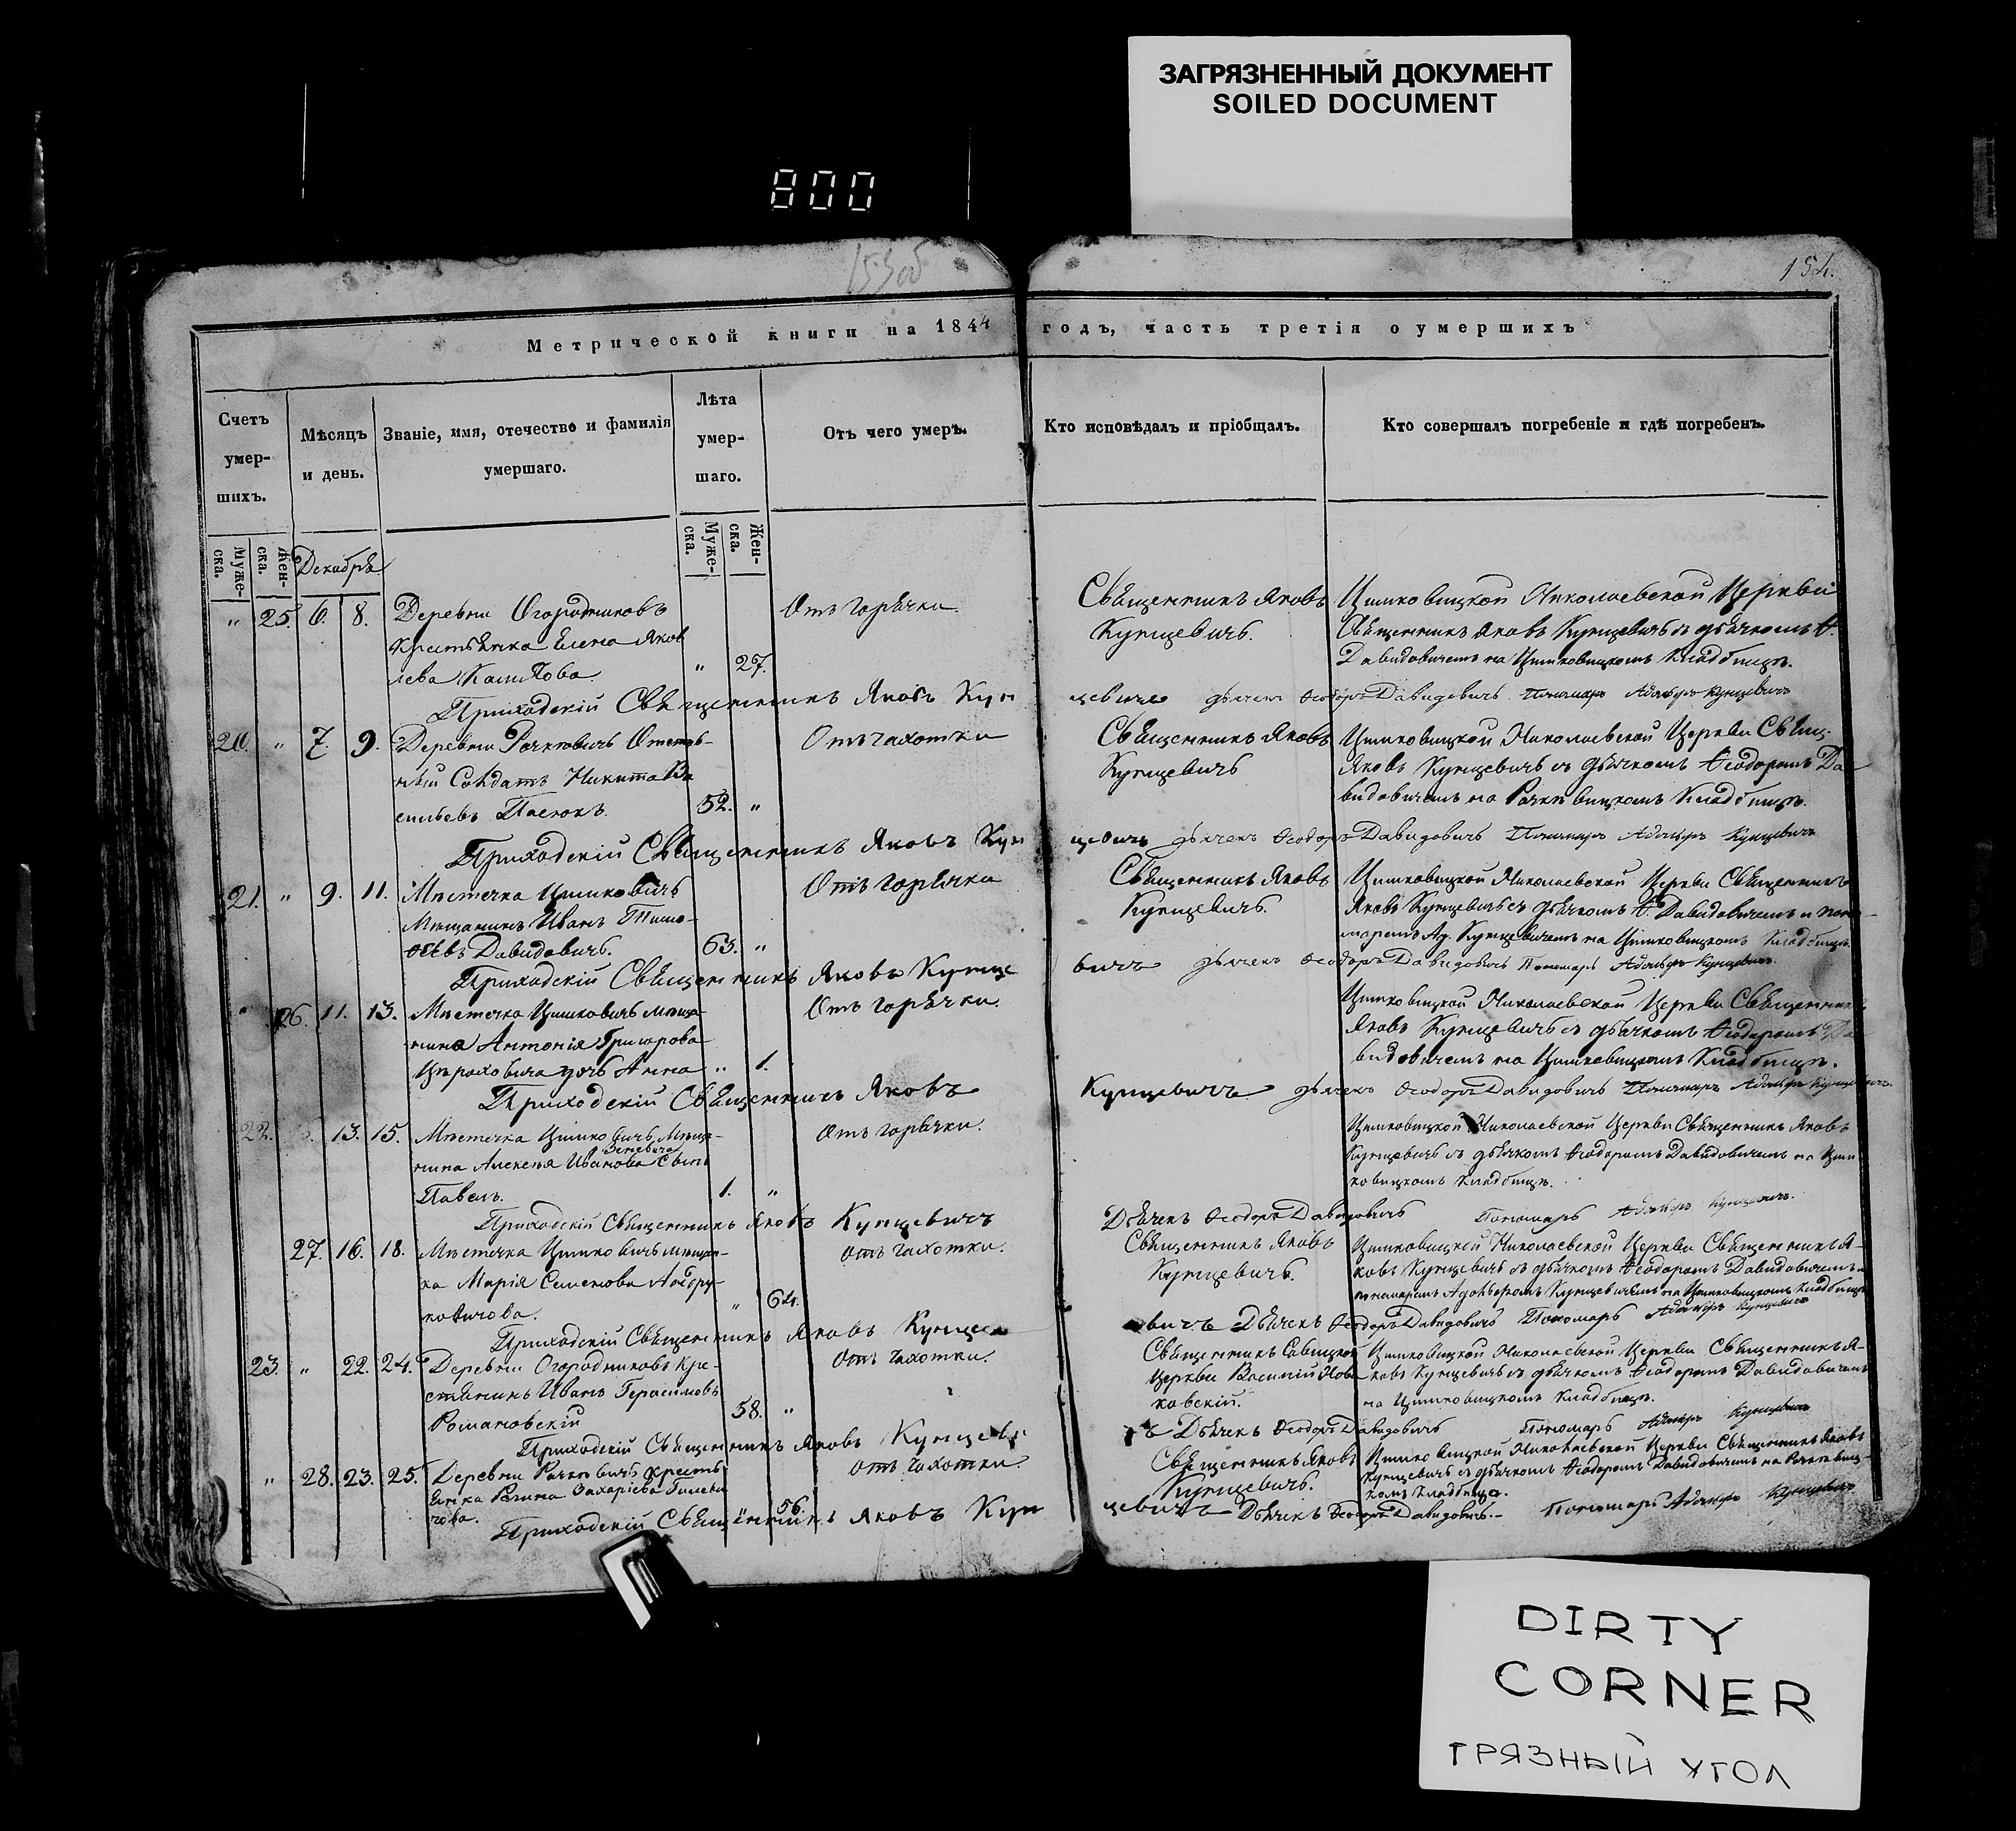 ЗАГРЯЗНЕННЫЙ ДОКУМЕНТ
SOILED DOCUMENT
800
153об
154.
Метрической книги на 1844 годъ, часть третія о умершихъ
Счетъ умер-шихъ.
Мѣсяцъ и день.
Званіе, имя, отечество и фамилія умершаго.
Лѣта умер-шаго.
Отъ чего умеръ.
Кто исповѣдалъ и пріобщалъ.
Кто совершалъ погребеніе и гдѣ погребенъ.
Муже-ска.
Жен-ска.
Декабря
Муже-ска.
Жен-ска.
„ 25. 6. 8. Деревни Огородниковъ
крестьянка Елена Яков
лева Калихова. „ 27.
Отъ горячки
Священникъ Яковъ
Купцевичь.
Цимковицкой Николаевской Церкви
Священникъ Яковъ Купцевичь съ дьячкомъ Ѳ.
Давидовичемъ на Цимковицкомъ кладбищѣ.
Приходскій Священникъ Яковъ Купцевичъ дьячекъ Ѳеодоръ Давидовичь Пономарь Адольфъ Купцевичъ
20. „ 7. 9. Деревни Рачковичь Отстав-
ный Солдатъ Никита Ва
сильевъ Пасюкъ. 52. „
Отъ чахотки
Священникъ Яковъ
Купцевичь
Цимковицкой Николаевской Церкви Свящ.
Яковъ Купцевичь съ дьячкомъ Ѳеодоромъ Да
видовичемъ на Рачковицкомъ кладбищѣ.
Приходскій Священникъ Яковъ Купцевичъ дьячекъ Ѳеодоръ Давидовичь Пономарь Адольфъ Купцевичъ
21. „ 9. 11. Мѣстечка Цимковичь
Мѣщанинъ Иванъ Тимо-
ѳѣевъ Давидовичь. 63. „
Отъ горячки
Священникъ Яковъ
Купцевичь.
Цимковицкой Николаевской Церкви Священникъ
Яковъ Купцевичь съ дьячкомъ Ѳ. Давидовичемъ и поно-
маремъ Ад. Купцевичемъ на Цимковицкомъ кладбищѣ.
Приходскій Священникъ Яковъ Купцевичъ дьячекъ Ѳеодоръ Давидовичь Пономарь Адольфъ Купцевичъ.
„ 26. 11. 13. Мѣстечка Цимковичь мѣща-
нина Антонія Григорова
дочь Анна „ 1.
Отъ горячки.
Цимковицкой Николаевской Церкви Священникъ
Яковъ Купцевичь съ дьячкомъ Ѳеодоромъ Да
видовичемъ на Цимковицкомъ кладбищѣ.
Приходскій Священникъ Яковъ Купцевичъ дьячекъ Ѳеодоръ Давидовичь Пономарь Адольфъ Купцевичъ
22. 13. 15. Мѣстечка Цимковичь Мѣща-
нина Алексѣя Иванова Зеневича Сынъ
Павелъ. 1. „
Отъ горячки.
Цимковицкой Николаевской Церкви Священникъ Яковъ
Купцевичь съ дьячкомъ Ѳеодоромъ Давидовичемъ на Цим
ковицкомъ кладбищѣ.
Приходскій Священникъ Яковъ Купцевичъ Дьячекъ Ѳеодоръ Давидовичь Пономарь Адольфъ Купцевичъ.
27. 16. 18. Мѣстечка Цимковичь мѣщан-
ка Марія Семенова
„ 64.
Отъ чахотки.
Священникъ Яковъ
Купцевичь.
Цимковицкой Николаевской Церкви Священникъ Я-
ковъ Купцевичь съ дьячкомъ Ѳеодоромъ Давидовичемъ и
пономаремъ Адольфомъ Купцевичемъ на Цимковицкомъ кладбищѣ
Приходскій Священникъ Яковъ Купцевичъ Дьячекъ Ѳеодоръ Давидовичь Пономарь Адольфъ Купцевичъ
23. „ 22. 24. Деревни Огородниковъ кре-
стьянинъ Иванъ Герасимовъ
Романовскій 58. „
Отъ чахотки.
Священникъ Савицкой
Церкви Василій
Цимковицкой Николаевской Церкви Священникъ Я-
ковъ Купцевичь съ дьячкомъ Ѳеодоромъ Давидовичемъ
на Цимковицкомъ кладбищѣ.
Приходскій Священникъ Яковъ Купцевичъ Дьячекъ Ѳеодоръ Давидовичь Пономарь Адольфъ Купцевичъ
„ 28. 23. 25. Деревни Рачковичь кресть-
янка Регина Захаріева
„ 56.
Отъ чахотки
Священникъ Яковъ
Купцевичь.
Цимковицкой Николаевской Церкви Священникъ Яковъ
Купцевичь съ дьячкомъ Ѳеодоромъ Давидовичемъ на Рачковиц-
комъ кладбищѣ.
Приходскій Священникъ Яковъ Купцевичъ Дьячекъ Ѳеодоръ Давидовичь. Пономарь Адольфъ Купцевичъ
DIRTY
CORNER
ГРЯЗНЫЙ УГОЛ